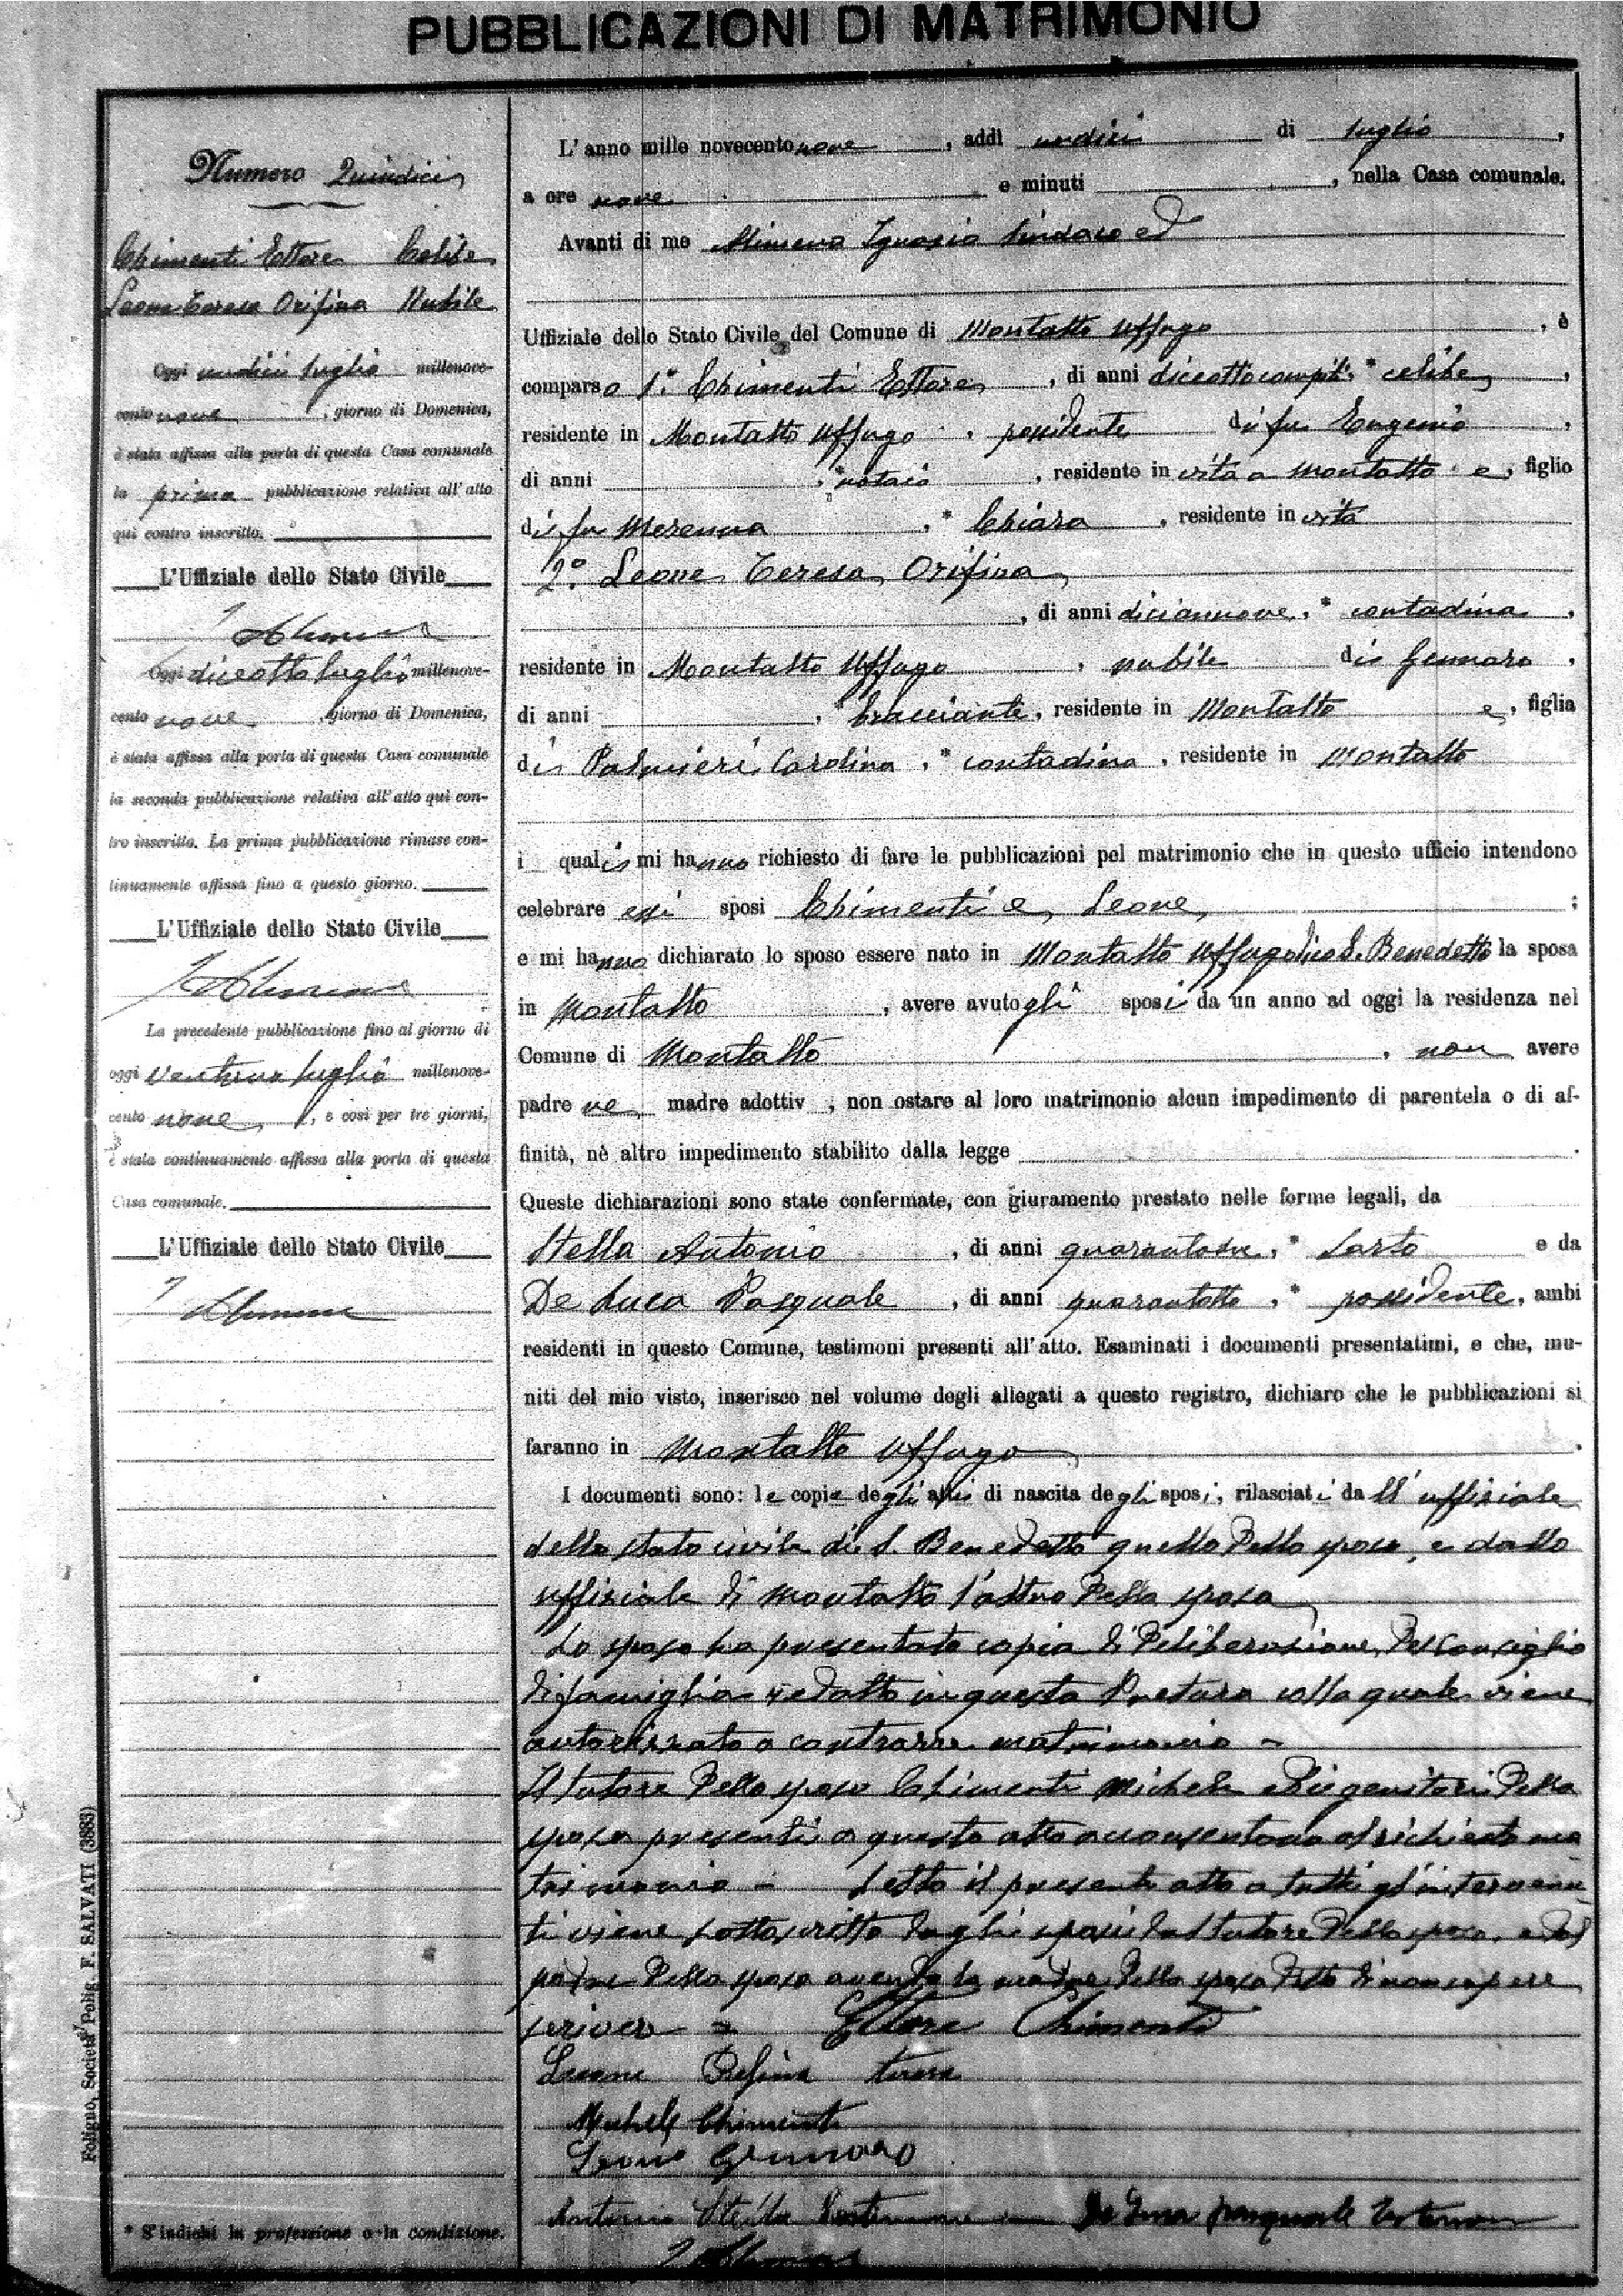 PUBBLICAZIONI DI MATRIMONIO
Numero Quindici
Chimenti Ettore Celibe
Leone Teresa Orifina Nubile
Oggi undici luglio millenove-
cento nove, giorno di Domenica,
è stata affissa alla porta di questa Casa comunale
la prima pubblicazione relativa all'atto
qui contro inscritto.
L'Uffiziale dello Stato Civile
Oggi diciotto luglio millenove-
cento nove, giorno di Domenica,
è stata affissa alla porta di questa Casa comunale
la seconda pubblicazione relativa all'atto qui con-
tro inscritto. La prima pubblicazione rimase con-
tinuamente affissa fino a questo giorno.
L'Uffiziale dello Stato Civile
La precedente pubblicazione fino al giorno di
oggi ventuno luglio millenove-
cento nove, e così per tre giorni,
è stata continuamente affissa alla porta di questa
Casa comunale.
L'Uffiziale dello Stato Civile
* S'indichi la professione o la condizione.
Foligno, Società Polig. F. SALVATI (3883)
L'anno mille novecento nove, addì undici di luglio,
a ore nove e minuti , nella Casa comunale.
Avanti di me Ignazio Sindaco ed
Uffiziale dello Stato Civile del Comune di Montalto Uffugo, è
comparso 1º Chimenti Ettore, di anni diciotto compiti * celibe,
residente in Montalto Uffugo, possidente di fu Eugenio,
di anni , * notaio, residente in vita a Montalto e, figlio
di fu Merenna, * Chiara, residente in vita
2º Leone Teresa Orifina
, di anni diciannove, * contadina,
residente in Montalto Uffugo, nubile di Gennaro,
di anni , * bracciante, residente in Montalto e, figlia
di Palmieri Carolina, * contadina, residente in Montalto
i quali mi hanno richiesto di fare le pubblicazioni pel matrimonio che in questo ufficio intendono
celebrare essi sposi Chimenti e Leone;
e mi hanno dichiarato lo sposo essere nato in Montalto Uffugo S. Benedetto la sposa
in Montalto, avere avuto gli sposi da un anno ad oggi la residenza nel
Comune di Montalto, non avere
padre ne madre adottiv , non ostare al loro matrimonio alcun impedimento di parentela o di af-
finità, nè altro impedimento stabilito dalla legge.
Queste dichiarazioni sono state confermate, con giuramento prestato nelle forme legali, da
Stella Antonio, di anni , * Sarto e da
De Luca Pasquale, di anni quarantotto, * possidente, ambi
residenti in questo Comune, testimoni presenti all'atto. Esaminati i documenti presentatimi, e che, mu-
niti del mio visto, inserisco nel volume degli allegati a questo registro, dichiaro che le pubblicazioni si
faranno in Montalto Uffugo.
I documenti sono: le copie degli atti di nascita degli sposi, rilasciati dall'uffiziale
dello stato civile di S. Benedetto quello dello sposo, e dallo
uffiziale di Montalto l'altro della sposa
Lo sposo ha presentato copia di deliberazione del Consiglio
di famiglia redatto in questa Pretura colla quale viene
autorizzato a contrarre matrimonio -
Il tutore dello sposo Chimenti Michele ed i genitori della
sposa presenti a questo atto acconsentono al richiesto ma
trimonio - Letto il presente atto a tutti gl'intervenu
ti viene sottoscritto dagli sposi dal tutore dello sposo, e dal
padre della sposa avendo la madre della sposa detto di non sapere
scrivere = Ettore Chimenti
Leone Orifina teresa
Michele Chimenti
Leone Gennaro
Antonio Stella Testimone De Luca pasquale testimone